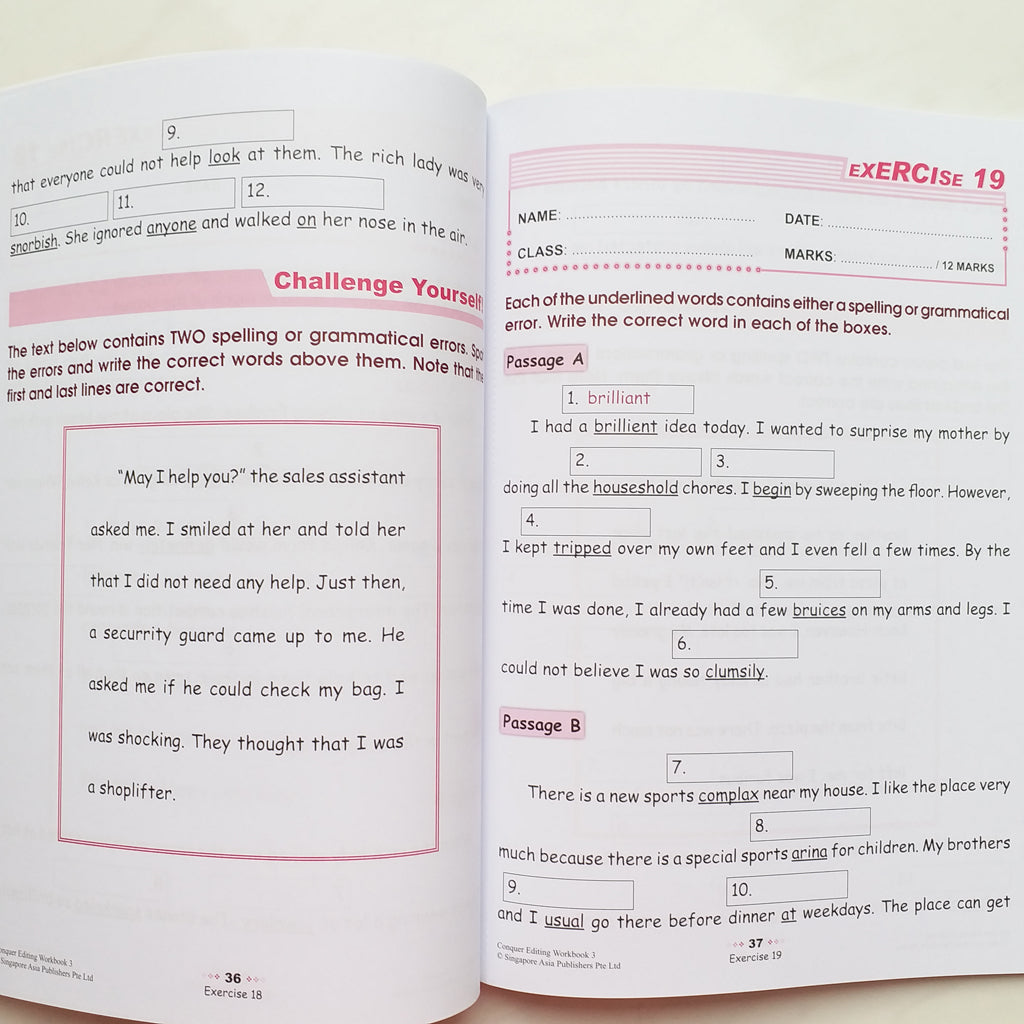 9.
that everyone could not help look at them. The rich lady was very
10. 11. 12.
snorbish. She ignored anyone and walked on her nose in the air.
Challenge Yourself!
The text below contains TWO spelling or grammatical errors. Spot
the errors and write the correct words above them. Note that the
first and last lines are correct.
"May I help you?" the sales assistant
asked me. I smiled at her and told her
that I did not need any help. Just then,
a securrity guard came up to me. He
asked me if he could check my bag. I
was shocking. They thought that I was
a shoplifter.
onquer Editing Workbook 3
Singapore Asia Publishers Pte Ltd
36
Exercise 18
EXERCISE 19
NAME: DATE:
CLASS: MARKS: / 12 MARKS
Each of the underlined words contains either a spelling or grammatical
error. Write the correct word in each of the boxes.
Passage A
1. brilliant
I had a brillient idea today. I wanted to surprise my mother by
2. 3.
doing all the houseshold chores. I begin by sweeping the floor. However,
4.
I kept tripped over my own feet and I even fell a few times. By the
5.
time I was done, I already had a few bruices on my arms and legs. I
6.
could not believe I was so clumsily.
Passage B
7.
There is a new sports complax near my house. I like the place very
8.
much because there is a special sports arina for children. My brothers
9. 10.
and I usual go there before dinner at weekdays. The place can get
Conquer Editing Workbook 3
© Singapore Asia Publishers Pte Ltd
37
Exercise 19